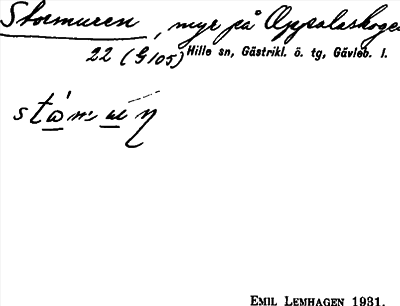 Stormuren, myr på Oppalaskogen
22 (G105) Hille sn, Gästrikl. ö. tg, Gävleb. l.
EMIL LEMHAGEN 1931.